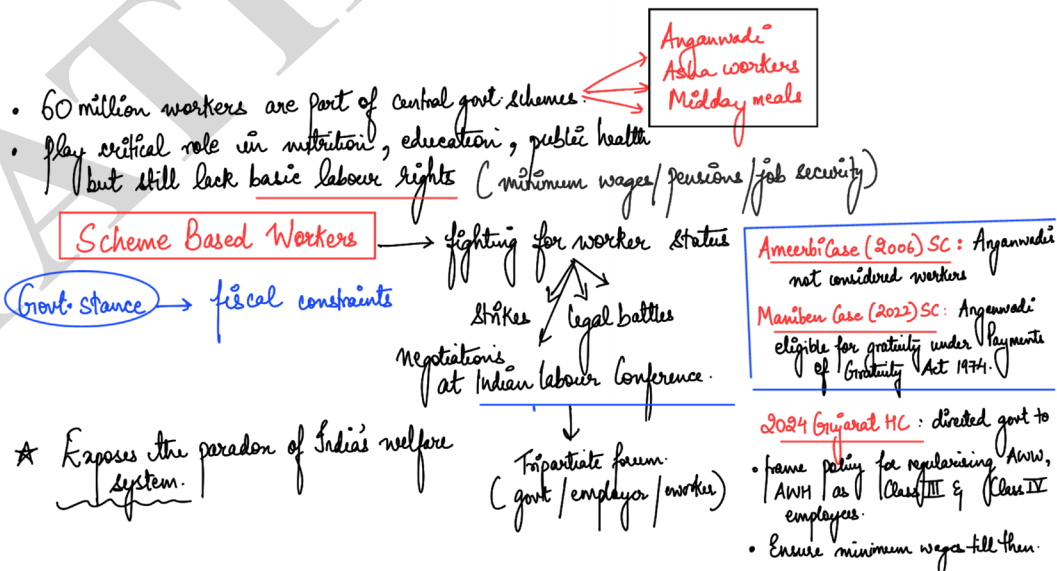 Anganwadi
Asha workers
Midday meals
• 60 million workers are part of central govt. schemes.
• Play critical role in nutrition, education, public health
but still lack basic labour rights (minimum wages/pensions/job security)
Scheme Based Workers → fighting for worker status
Govt. stance → fiscal constraints
Strikes
legal battles
negotiations
at Indian labour Conference.
Tripartiate forum.
(govt/employer/worker)
☆ Exposes the paradox of India's welfare
system.
Ameerbi Case (2006) SC: Anganwadis
not considered workers
Maniben Case (2022) SC: Anganwadi
eligible for gratuity under Payments
of Gratuity Act 1974.
2024 Gujarat HC: directed govt to
• frame policy for regularising AWW,
AWH as Class III & Class IV
employees.
• Ensure minimum wages till then.